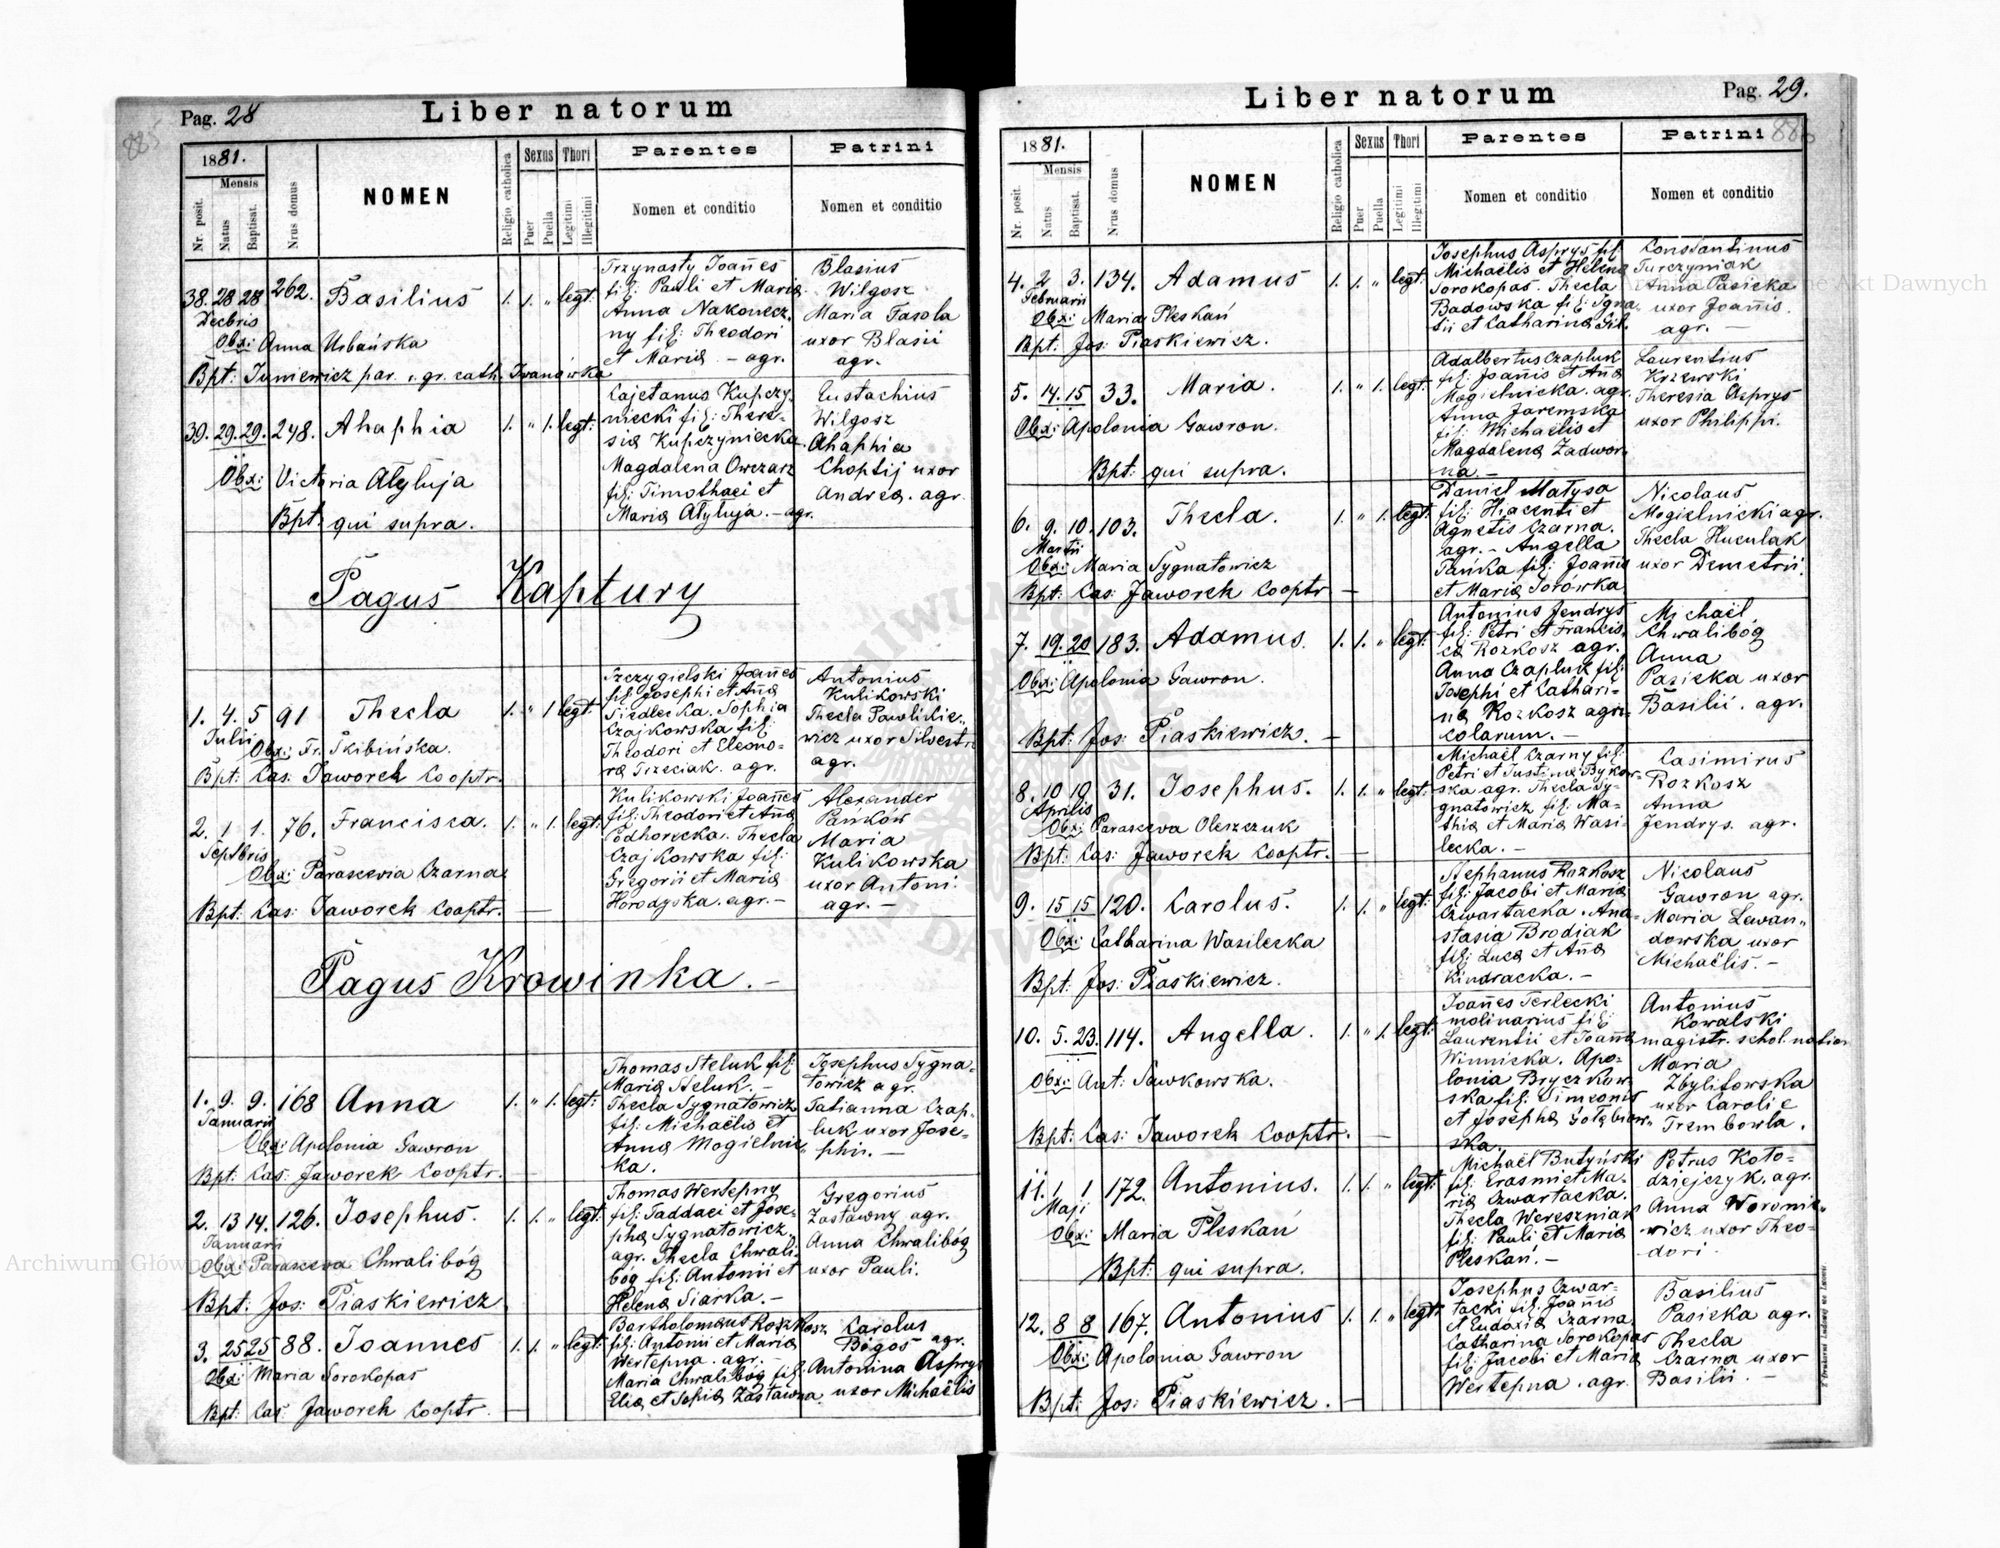 Pag. 28
Liber natorum
1881.
Mensis
Nr. posit.
Natus
Baptisat.
Nrus domus
NOMEN
Religio catholica
Sexus
Puer
Puella
Thori
Legitimi
Illegitimi
Parentes
Nomen et conditio
Patrini
Nomen et conditio
38. 28 28 262. Basilius 1. 1. „ legt:
Decbris
Obx: Anna Urbańska
Bpt: Juniewicz par. r. gr. cath. Iwanówka
Trzynasty Joannes
fil: Pauli et Maria
Anna Nakonecz-
ny fil: Theodori
et Maria – agr.
Blasius
Wilgosz
Maria Fasola
uxor Blasii
agr.
39. 29. 29. 248. Ahaphia 1. „ 1. legt:
Obx: Victoria Alyluja
Bpt: qui supra.
Cajetanus Kupczy-
niecki fil: There-
sia Kupczyniecka
Magdalena Owczarz
fil: Timothaei et
Maria Alyluja. – agr.
Eustachius
Wilgosz
Ahaphia
Choptij uxor
Andrea. agr.
Pagus Kaptury
1. 4. 5 91 Thecla 1. „ 1 legt:
Julii
Obx: Fr. Skibińska.
Bpt: Cas: Jaworek Cooptr.
Szczygielski Joannes
fil: Josephi et Anna
Siedlecka. Sophia
Czajkowska fil:
Theodori et Eleono-
ra Trzeciak. agr.
Antonius
Kulikowski
Thecla Pawlikie-
wicz uxor Silvestri
agr.
2. 1 1. 76. Francisca. 1. „ 1. legt:
Septbris
Obx: Parascewia Czarna
Bpt: Cas: Jaworek Cooptr. –
Kulikowski Joannes
fil: Theodori et Anna
Podhorecka. Thecla
Czajkowska fil:
Gregorii et Maria
Horodyska. agr. –
Alexander
Pańków
Maria
Kulikowska
uxor Antoni.
agr. –
Pagus Krowinka. –
1. 9. 9. 168 Anna 1. „ 1. legt:
Januarii
Obx: Apolonia Gawron
Bpt: Cas: Jaworek Cooptr. –
Thomas Steluk fil:
Maria Steluk. –
Thecla Sygnatowicz
fil: Michaëlis et
Anna Mogielnic-
ka.
Josephus Sygna-
towicz agr.
Tatianna Czap-
luk uxor Jose-
phi. –
2. 13 14. 126. Josephus. 1. 1. „ legt:
Januarii
Obx: Parascewa Chwalibóg
Bpt: Jos: Piaskiewicz
Thomas Wertepny
fil: Taddaei et Jose-
pha Sygnatowicz
agr. Thecla Chwali-
bóg fil: Antonii et
Helena Siarka. –
Gregorius
Zastawny agr.
Anna Chwalibóg
uxor Pauli.
3. 25 25 88. Joannes 1. 1. „ legt:
Obx: Maria Sorokopas
Bpt: Cas: Jaworek Cooptr. –
Bartholomaeus Rozkosz
fil: Antonii et Maria
Wertepna. agr. –
Maria Chwalibóg fil:
Elia et Sophia Zastawna.
Carolus
Bógos agr.
Antonina Asprys
uxor Michaëlis
Pag. 29.
Liber natorum
1881.
Mensis
Nr. posit.
Natus
Baptisat.
Nrus domus
NOMEN
Religio catholica
Sexus
Puer
Puella
Thori
Legitimi
Illegitimi
Parentes
Nomen et conditio
Patrini
Nomen et conditio
4. 2 3. 134. Adamus 1. 1. „ legt:
Februarii
Obx: Maria Pleskań
Bpt: Jos: Piaskiewicz.
Josephus Asprys fil:
Michaëlis et Helena
Sorokopas. Thecla
Badowska fil: Igna-
tii et Catharina Gil.
Constantinus
Turczyniak
Anna Pasieka
uxor Joannis.
agr. –
5. 14. 15 33. Maria. 1. „ 1. legt:
Obx: Apolonia Gawron.
Bpt: qui supra.
Adalbertus Czapluk
fil: Joannis et Anna
Mogielnicka. agr.
Anna Jaremska
fil: Michaëlis et
Magdalena Zadwor-
na –
Laurentius
Krzewski
Theresia Asprys
uxor Philippi.
6. 9. 10. 103. Thecla. 1. „ 1. legt:
Martii
Obx: Maria Sygnatowicz
Bpt: Cas: Jaworek Cooptr. –
Daniel Matysa
fil: Hiacenti et
Agnetis Czarna.
agr. – Angella
Pańka fil: Joannis
et Maria Sorówka
Nicolaus
Mogielnicki agr.
Thecla Huculak
uxor Demetrii.
7. 19. 20 183. Adamus. 1. 1. „ legt:
Obx: Apolonia Gawron.
Bpt: Jos: Piaskiewicz. –
Antonius Jendrys
fil: Petri et Francis-
ca Rozkosz agr.
Anna Czapluk fil:
Josephi et Cathari-
na Rozkosz agri-
colarum. –
Michaël
Chwalibóg
Anna
Pasieka uxor
Basilii. agr.
8. 10 10 31. Josephus. 1. 1. „ legt:
Aprilis
Obx: Parascewa Oleszczuk
Bpt: Cas: Jaworek Cooptr. –
Michaël Czarny fil:
Petri et Justina Bykow-
ska agr. Thecla Sy-
gnatowicz fil: Ma-
thia et Maria Wasi-
lecka. –
Casimirus
Rozkosz
Anna
Jendrys. agr.
9. 15 15 120. Carolus. 1. 1. „ legt:
Obx: Catharina Wasilecka
Bpt: Jos: Piaskiewicz.
Stephanus Rozkosz
fil: Jacobi et Maria
Czwartacka. Ana-
stasia Brodiak
fil: Luca et Anna
Kindracka. –
Nicolaus
Gawron agr.
Maria Lewan-
dowska uxor
Michaëlis. –
10. 5. 23. 114. Angella. 1. „ 1. legt:
Obx: Ant: Sawkowska.
Bpt: Cas: Jaworek Cooptr. –
Joannes Terlecki
molinarius fil:
Laurentii et Joanna
Winnicka. Apo-
lonia Bryczkow-
ska fil: Simeonis
et Josepha Gołębiow-
ska.
Antonius
Kowalski
magistr. schol. nation
Maria
Zbylitowska
uxor Caroli e
Trembowla.
11. 1 1 172. Antonius. 1. 1. „ legt:
Maji
Obx: Maria Pleskań
Bpt: qui supra.
Michaël Butyński
fil: Erasmi et Ma-
ria Czwartacka.
Thecla Wereszniak
fil: Pauli et Maria
Pleskań. –
Petrus Koło-
dziejczyk. agr.
Anna Woronie-
wicz uxor Theo-
dori.
12. 8 8 167. Antonius 1. 1. „ legt:
Obx: Apolonia Gawron
Bpt: Jos: Piaskiewicz. –
Josephus Czwar-
tacki fil: Joannis
et Eudoxia Czarna.
Catharina Sorokopas
fil: Jacobi et Maria
Wertepna. agr.
Basilius
Pasieka agr.
Thecla
Czarna uxor
Basilii. –